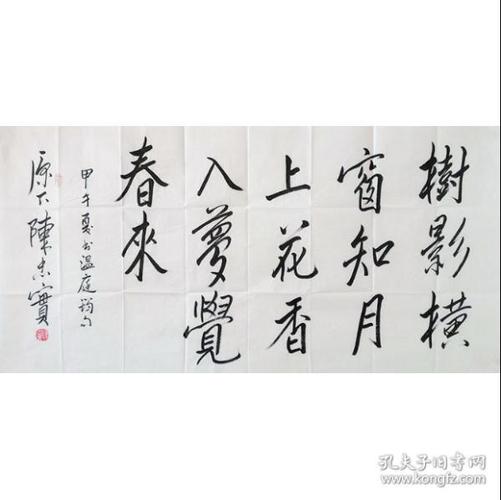 樹影橫
窗知月
上花香
入夢覺
春來
甲午夏书温庭筠句
原下陳忠實
孔夫子旧书网
www.kongfz.com